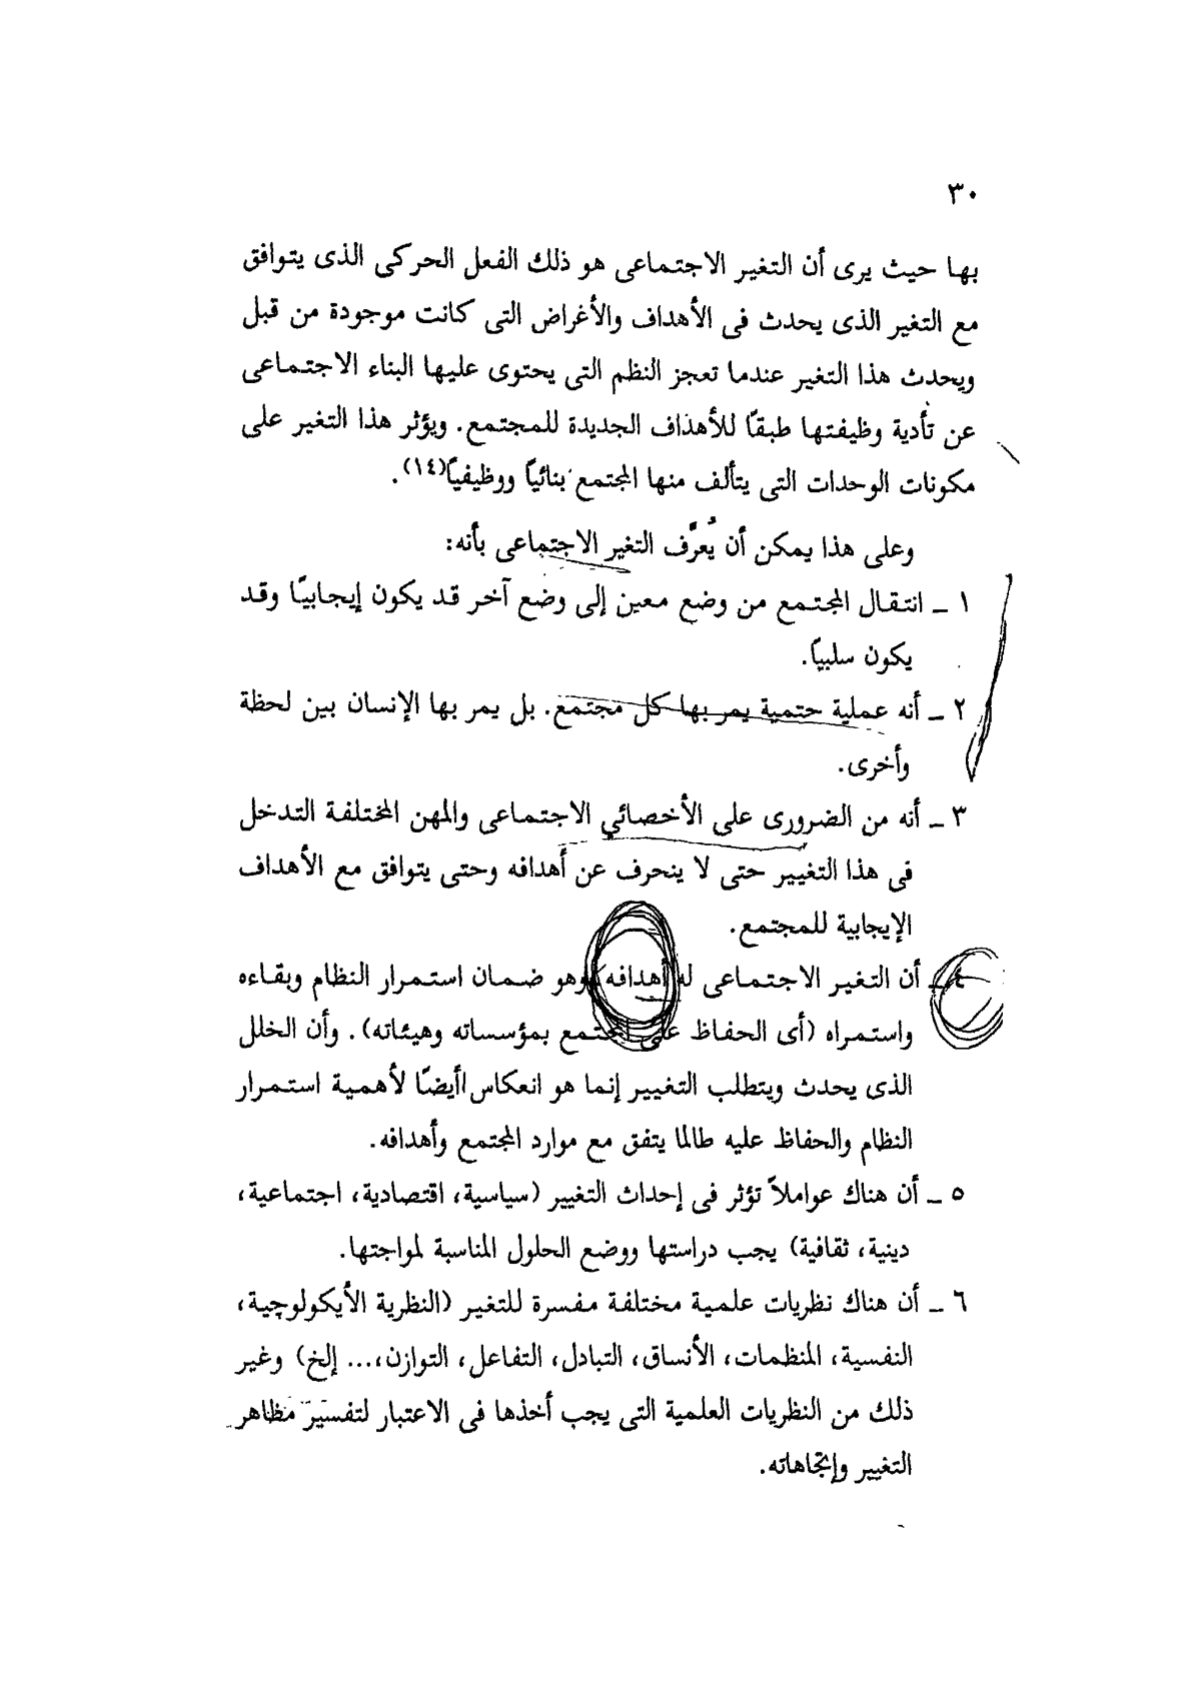 ٣٠
بها حيث يرى أن التغير الاجتماعى هو ذلك الفعل الحركى الذى يتوافق
مع التغير الذى يحدث فى الأهداف والأغراض التى كانت موجودة من قبل
ويحدث هذا التغير عندما تعجز النظم التى يحتوى عليها البناء الاجتماعى
عن تأدية وظيفتها طبقًا للأهداف الجديدة للمجتمع. ويؤثر هذا التغير على
مكونات الوحدات التى يتألف منها المجتمع بنائيًا ووظيفيًا(١٤).
وعلى هذا يمكن أن يُعرَّف التغير الاجتماعى بأنه:
١ ـ انتقال المجتمع من وضع معين إلى وضع آخر قد يكون إيجابيًا وقد
يكون سلبيًا.
٢ ـ أنه عملية حتمية يمر بها كل مجتمع. بل يمر بها الإنسان بين لحظة
وأخرى.
٣ ـ أنه من الضرورى على الأخصائي الاجتماعى والمهن المختلفة التدخل
فى هذا التغيير حتى لا ينحرف عن أهدافه وحتى يتوافق مع الأهداف
الإيجابية للمجتمع.
٤ ـ أن التغير الاجتماعى له أهدافه وهو ضمان استمرار النظام وبقاءه
واستمراه (أى الحفاظ على المجتمع بمؤسساته وهيئاته). وأن الخلل
الذى يحدث ويتطلب التغيير إنما هو انعكاس أيضًا لأهمية استمرار
النظام والحفاظ عليه طالما يتفق مع موارد المجتمع وأهدافه.
٥ ـ أن هناك عواملاً تؤثر فى إحداث التغيير (سياسية، اقتصادية، اجتماعية،
دينية، ثقافية) يجب دراستها ووضع الحلول المناسبة لمواجتها.
٦ ـ أن هناك نظريات علمية مختلفة مفسرة للتغير (النظرية الأيكولوچية،
النفسية، المنظمات، الأنساق، التبادل، التفاعل، التوازن،... إلخ) وغير
ذلك من النظريات العلمية التى يجب أخذها فى الاعتبار لتفسير مظاهر
التغيير وإتجاهاته.